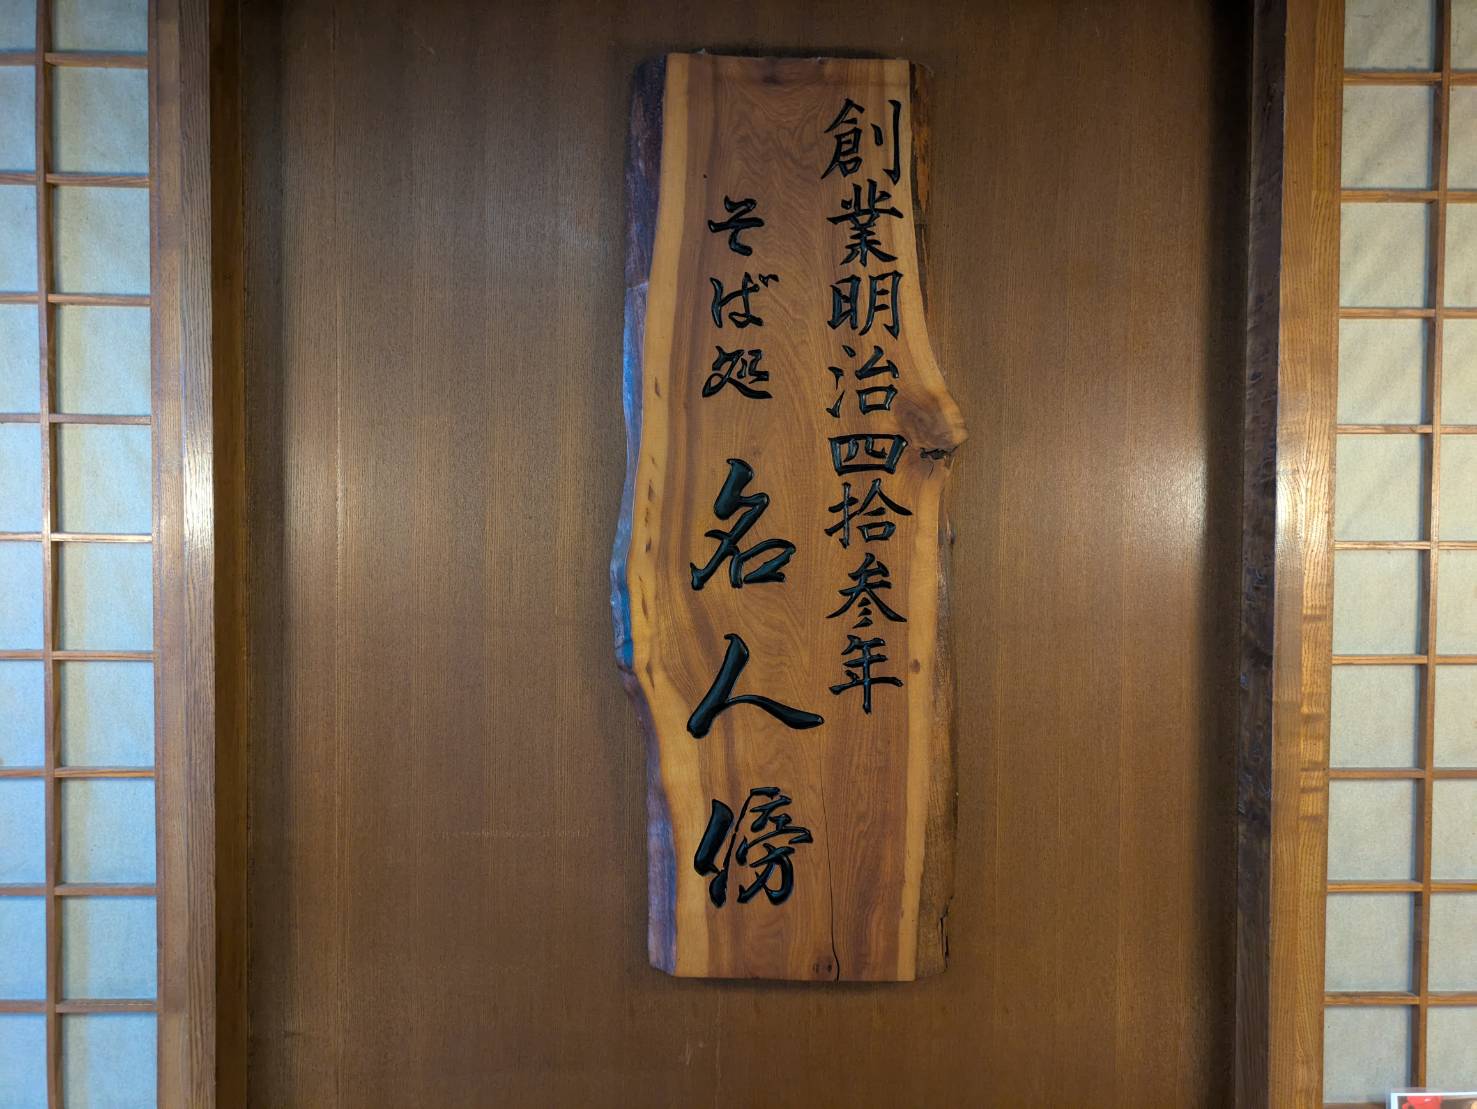 創業明治四拾参年
そば処 名人傍